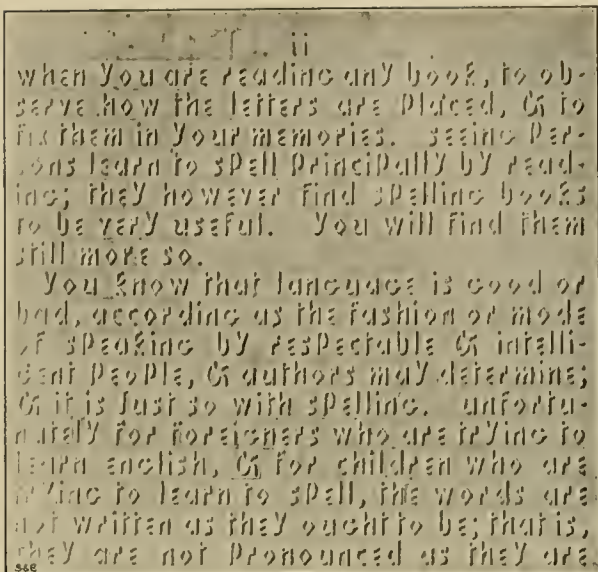 ii
when you are reading any book, to ob-
serve how the letters are placed, & to
fix them in your memories. seeing per-
sons learn to spell principally by read-
ing; they however find spelling books
to be very useful. You will find them
still more so.
You know that language is good or
bad, according as the fashion or mode
of speaking by respectable & intelli-
gent people, & authors may determine;
& it is just so with spelling. unfortu-
nately for foreigners who are trying to
learn english, & for children who are
trying to learn to spell, the words are
not written as they ought to be; that is,
they are not pronounced as they are
S&B